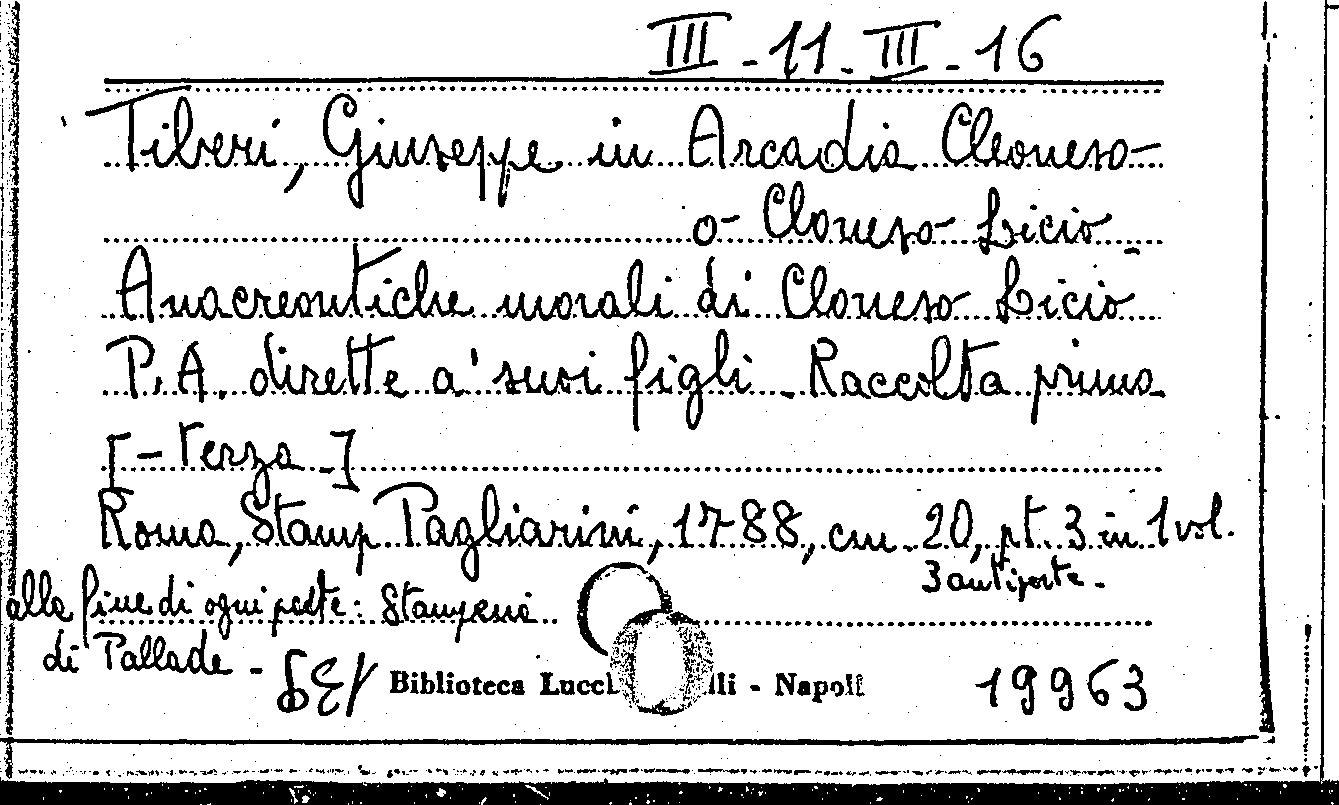 III - 11 - III - 16
Tiberi, Giuseppe in Arcadia Cleoneso
o Cloneso Licio -
Anacreontiche morali di Cloneso Licio
P.A. dirette a' suoi figli - Raccolta prima
[- terza -]
Roma, Stamp Pagliarini, 1788, cm. 20, pt. 3 in 1 vol.
3 antiporte -
alla fine di ogni parte: Stamperia
di Pallade -
Biblioteca Lucchesi - Napoli
19963